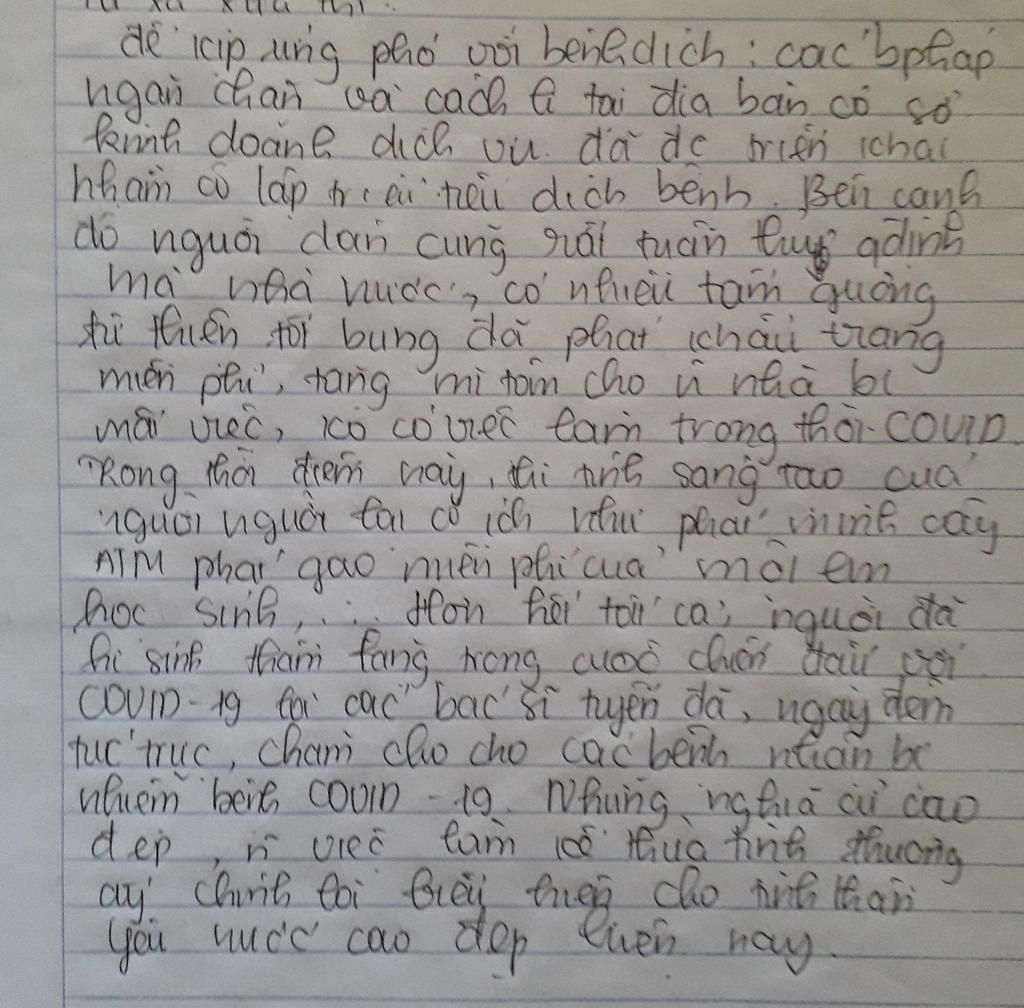 để kịp ứng phó với bệnh dịch : các bpháp
ngăn chặn và cách li tại địa bàn có sở
kinh doanh dịch vụ đã đc triển khai
nhằm cô lập triệt tiêu dịch bệnh. Bên cạnh
đó người dân cũng rất tuân thủ qđịnh
mà nhà nước, có nhiều tấm gương
từ thiện tốt bụng đã phát khẩu trang
miễn phí, tặng mì tôm cho n nhà bị
mất việc, ko có việc làm trong thời COVID
Rong thời điểm này, thì tính sáng tạo của
người người lại có ích như phát minh cây
ATM phát gạo miễn phí của một em
học sinh, ... Hơn hết tất cả, người đã
hi sinh thầm lặng trong cuộc chiến đấu với
COVID-19 là các bác sĩ tuyến đầ, ngày đêm
túc trực, chăm cho cho các bệnh nhân bị
nhiễm bệnh COVID-19. Những nghĩa cử cao
đẹp, n việc làm kể thừa tình thương
ấy chính là biểu hiện cho tinh thần
yêu nước cao đẹp hiện nay.